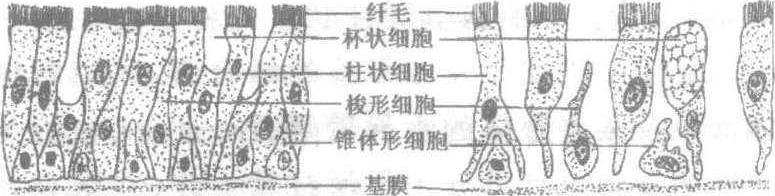 纤毛
杯状细胞
柱状细胞
梭形细胞
锥体形细胞
基膜